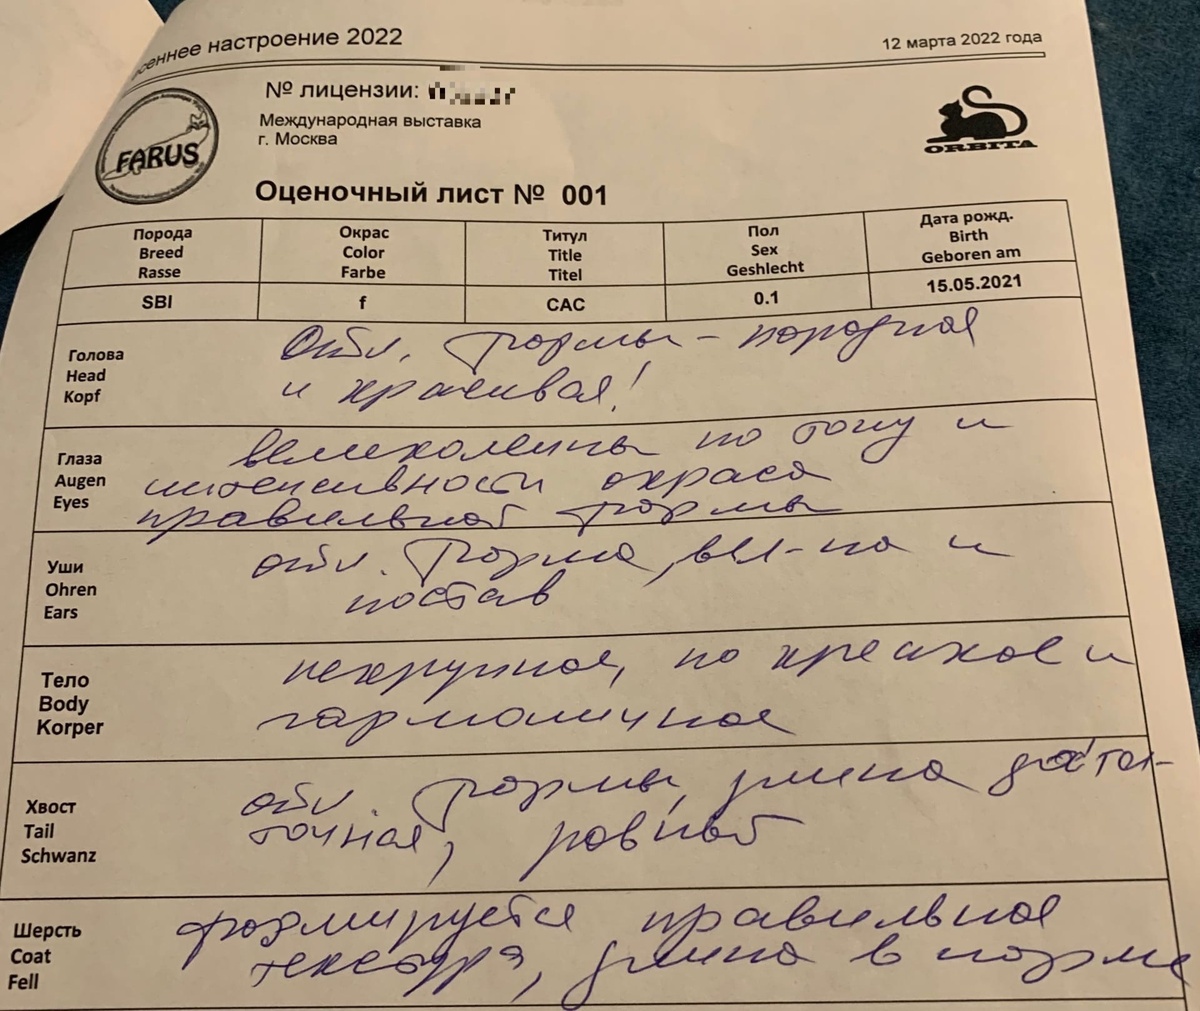 сеннее настроение 2022
12 марта 2022 года
№ лицензии:
Международная выставка
г. Москва
FARUS
ORBITA
Оценочный лист № 001
Порода Окрас Титул Пол Дата рожд.
Breed Color Title Sex Birth
Rasse Farbe Titel Geshlecht Geboren am
SBI f CAC 0.1 15.05.2021
Голова
Head
Kopf
отл. формы - породная
и красивая!
Глаза
Augen
Eyes
великолепны по тону и
интенсивности окраса
правильной формы
Уши
Ohren
Ears
отл. форма, вел-на и
постав
Тело
Body
Korper
некрупное, но крепкое и
гармоничное
Хвост
Tail
Schwanz
отл. формы, длина доста-
точная, ровный
Шерсть
Coat
Fell
формируется правильная
текстура, длина в норме